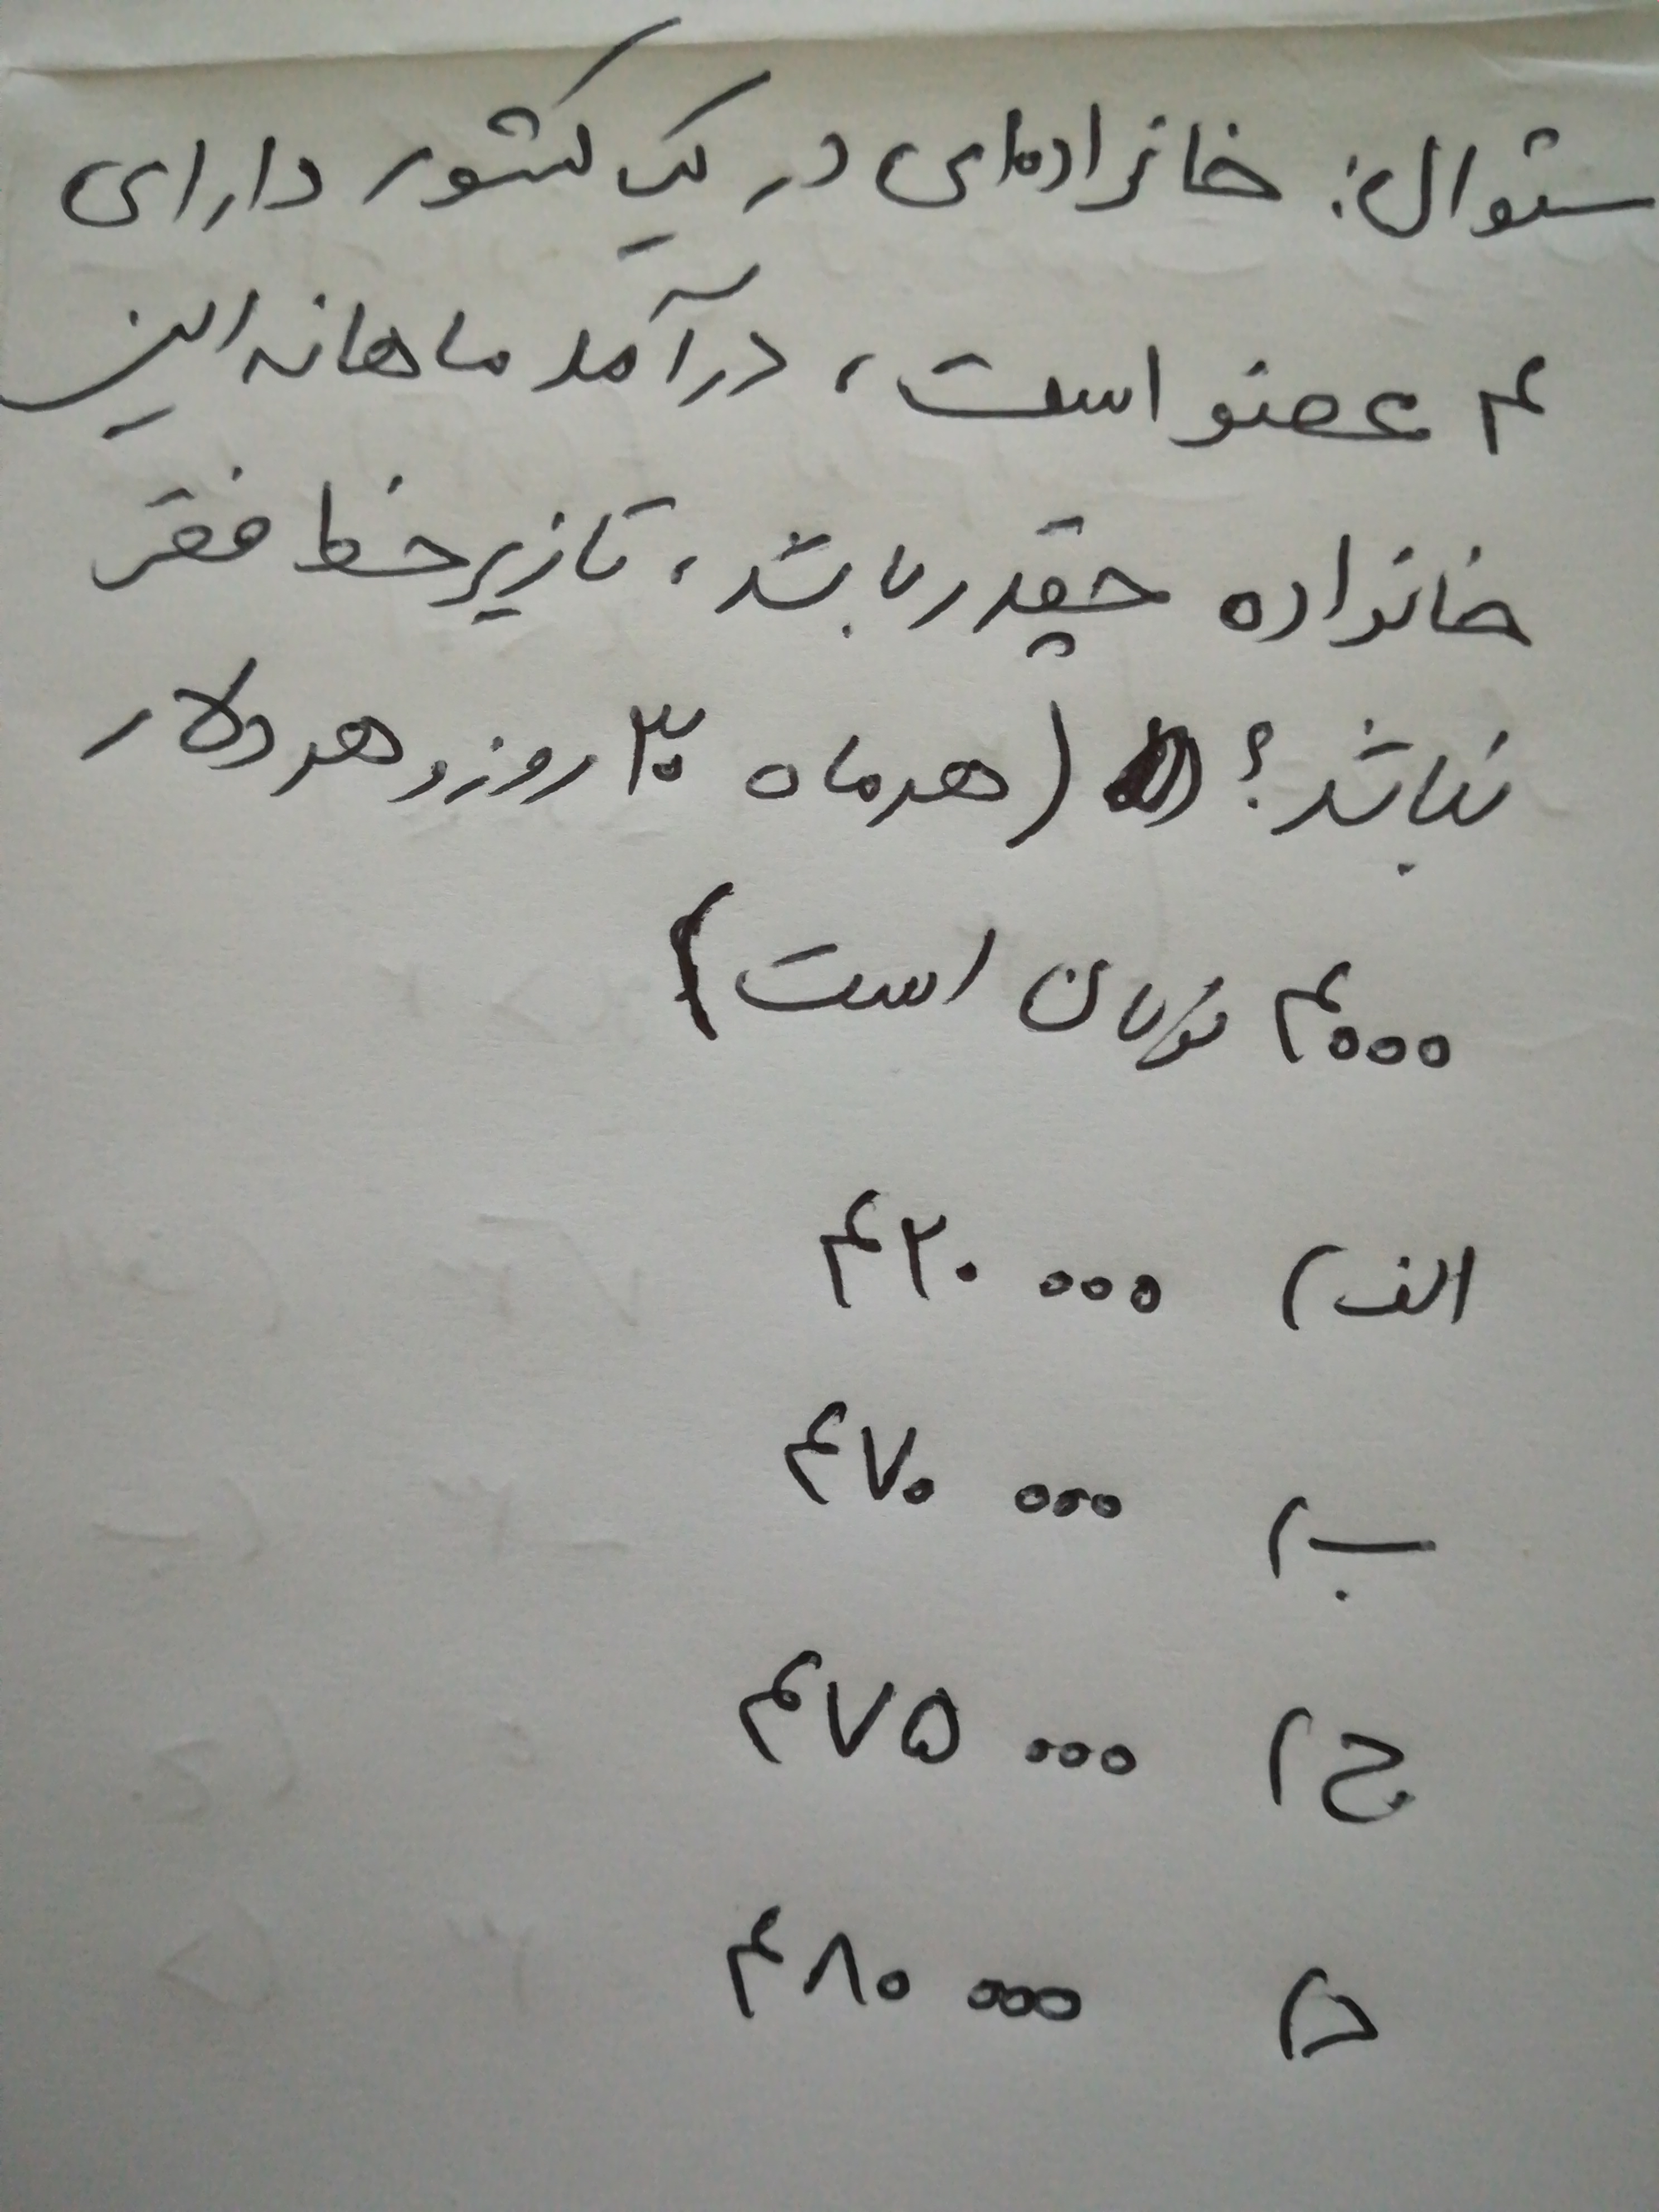 سئوال: خانواده‌ای در یک کشور دارای
۴ عضو است، درآمد ماهانه این
خانواده چقدر باشد، تا زیر خط فقر
نباشد؟ (هر ماه ۳۰ روز و هر دلار
۴۰۰۰ تومان است)
الف) ۴۲۰ ۰۰۰
ب) ۴۷۰ ۰۰۰
ج) ۴۷۵ ۰۰۰
د) ۴۸۰ ۰۰۰